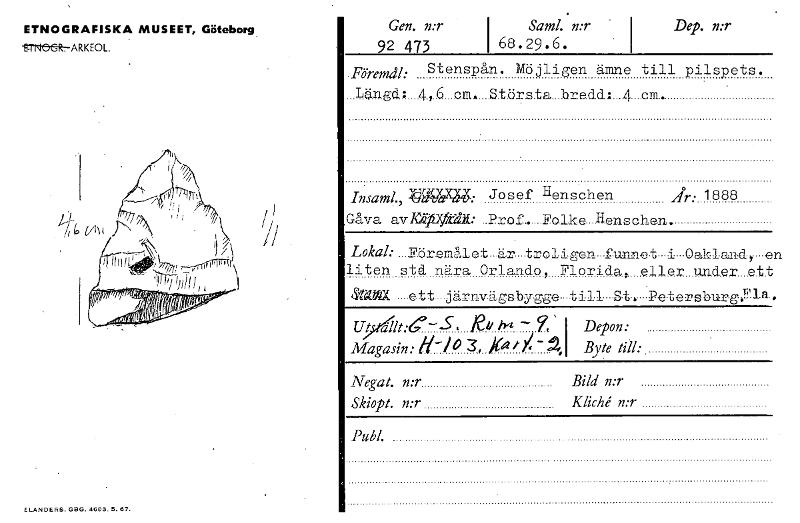 ETNOGRAFISKA MUSEET, Göteborg
ETNOGR- ARKEOL.
Gen. n:r
Saml. n:r
Dep. n:r
92 473
68.29.6.
Föremål: Stenspån. Möjligen ämne till pilspets.
Längd: 4,6 cm. Största bredd: 4 cm.
4,6 cm
1/1
Insaml., Josef Henschen År: 1888
Gåva av Köpt från: Prof. Folke Henschen.
Lokal: Föremålet är troligen funnet i Oakland, en
liten std nära Orlando, Florida, eller under ett
ett järnvägsbygge till St. Petersburg, Fla.
Utställt: G-S. Rum-9.
Depon:
Magasin: H-103. Kart.-2.
Byte till:
Negat. n:r
Bild n:r
Skiopt. n:r
Kliché n:r
Publ.
ELANDERS, GBG. 4603. S. 67.